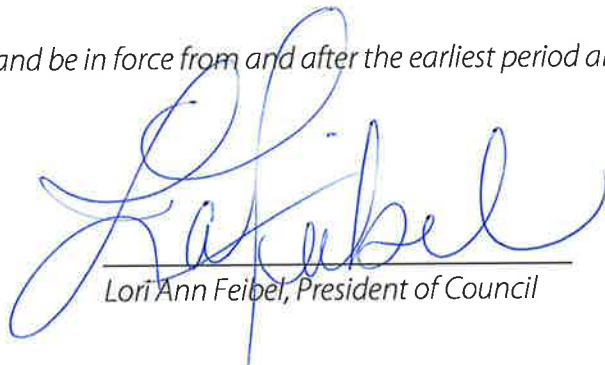 and be in force from and after the earliest period al
Lori Ann Feibel, President of Council